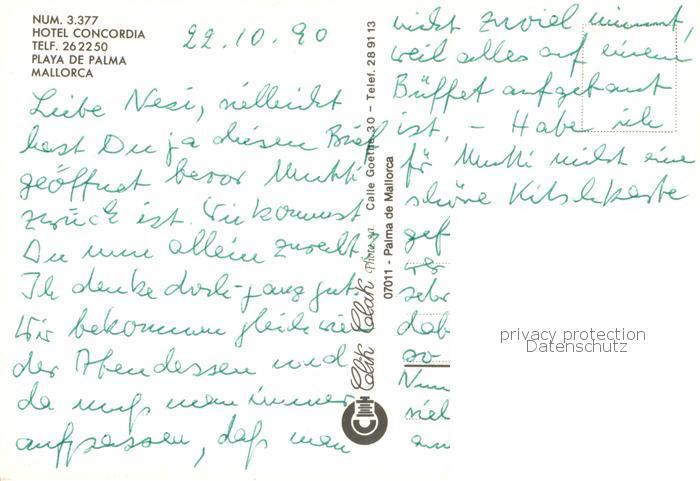 NUM. 3.377
HOTEL CONCORDIA
TELF. 262250
PLAYA DE PALMA
MALLORCA
22.10.90
Liebe Nesi, vielleicht
hast Du ja diesen Brief
geöffnet bevor Mutti
zurück ist. Wie kommst
Du nun allein zurecht?
Ich denke doch ganz gut.
Wir bekommen gleich wieder
der Abendessen und
da muß man immer
aufpassen, daß man
nicht zuviel nimmt,
weil alles auf einem
Büffet aufgebaut
ist. – Habe ich
für Mutti nicht eine
schöne Kitschkarte
gef
sehr
dab
so
Nun
viel
Clik Clak Photo sa Calle Goethe 30 - Telef. 28 91 13
07011 - Palma de Mallorca
privacy protection
Datenschutz